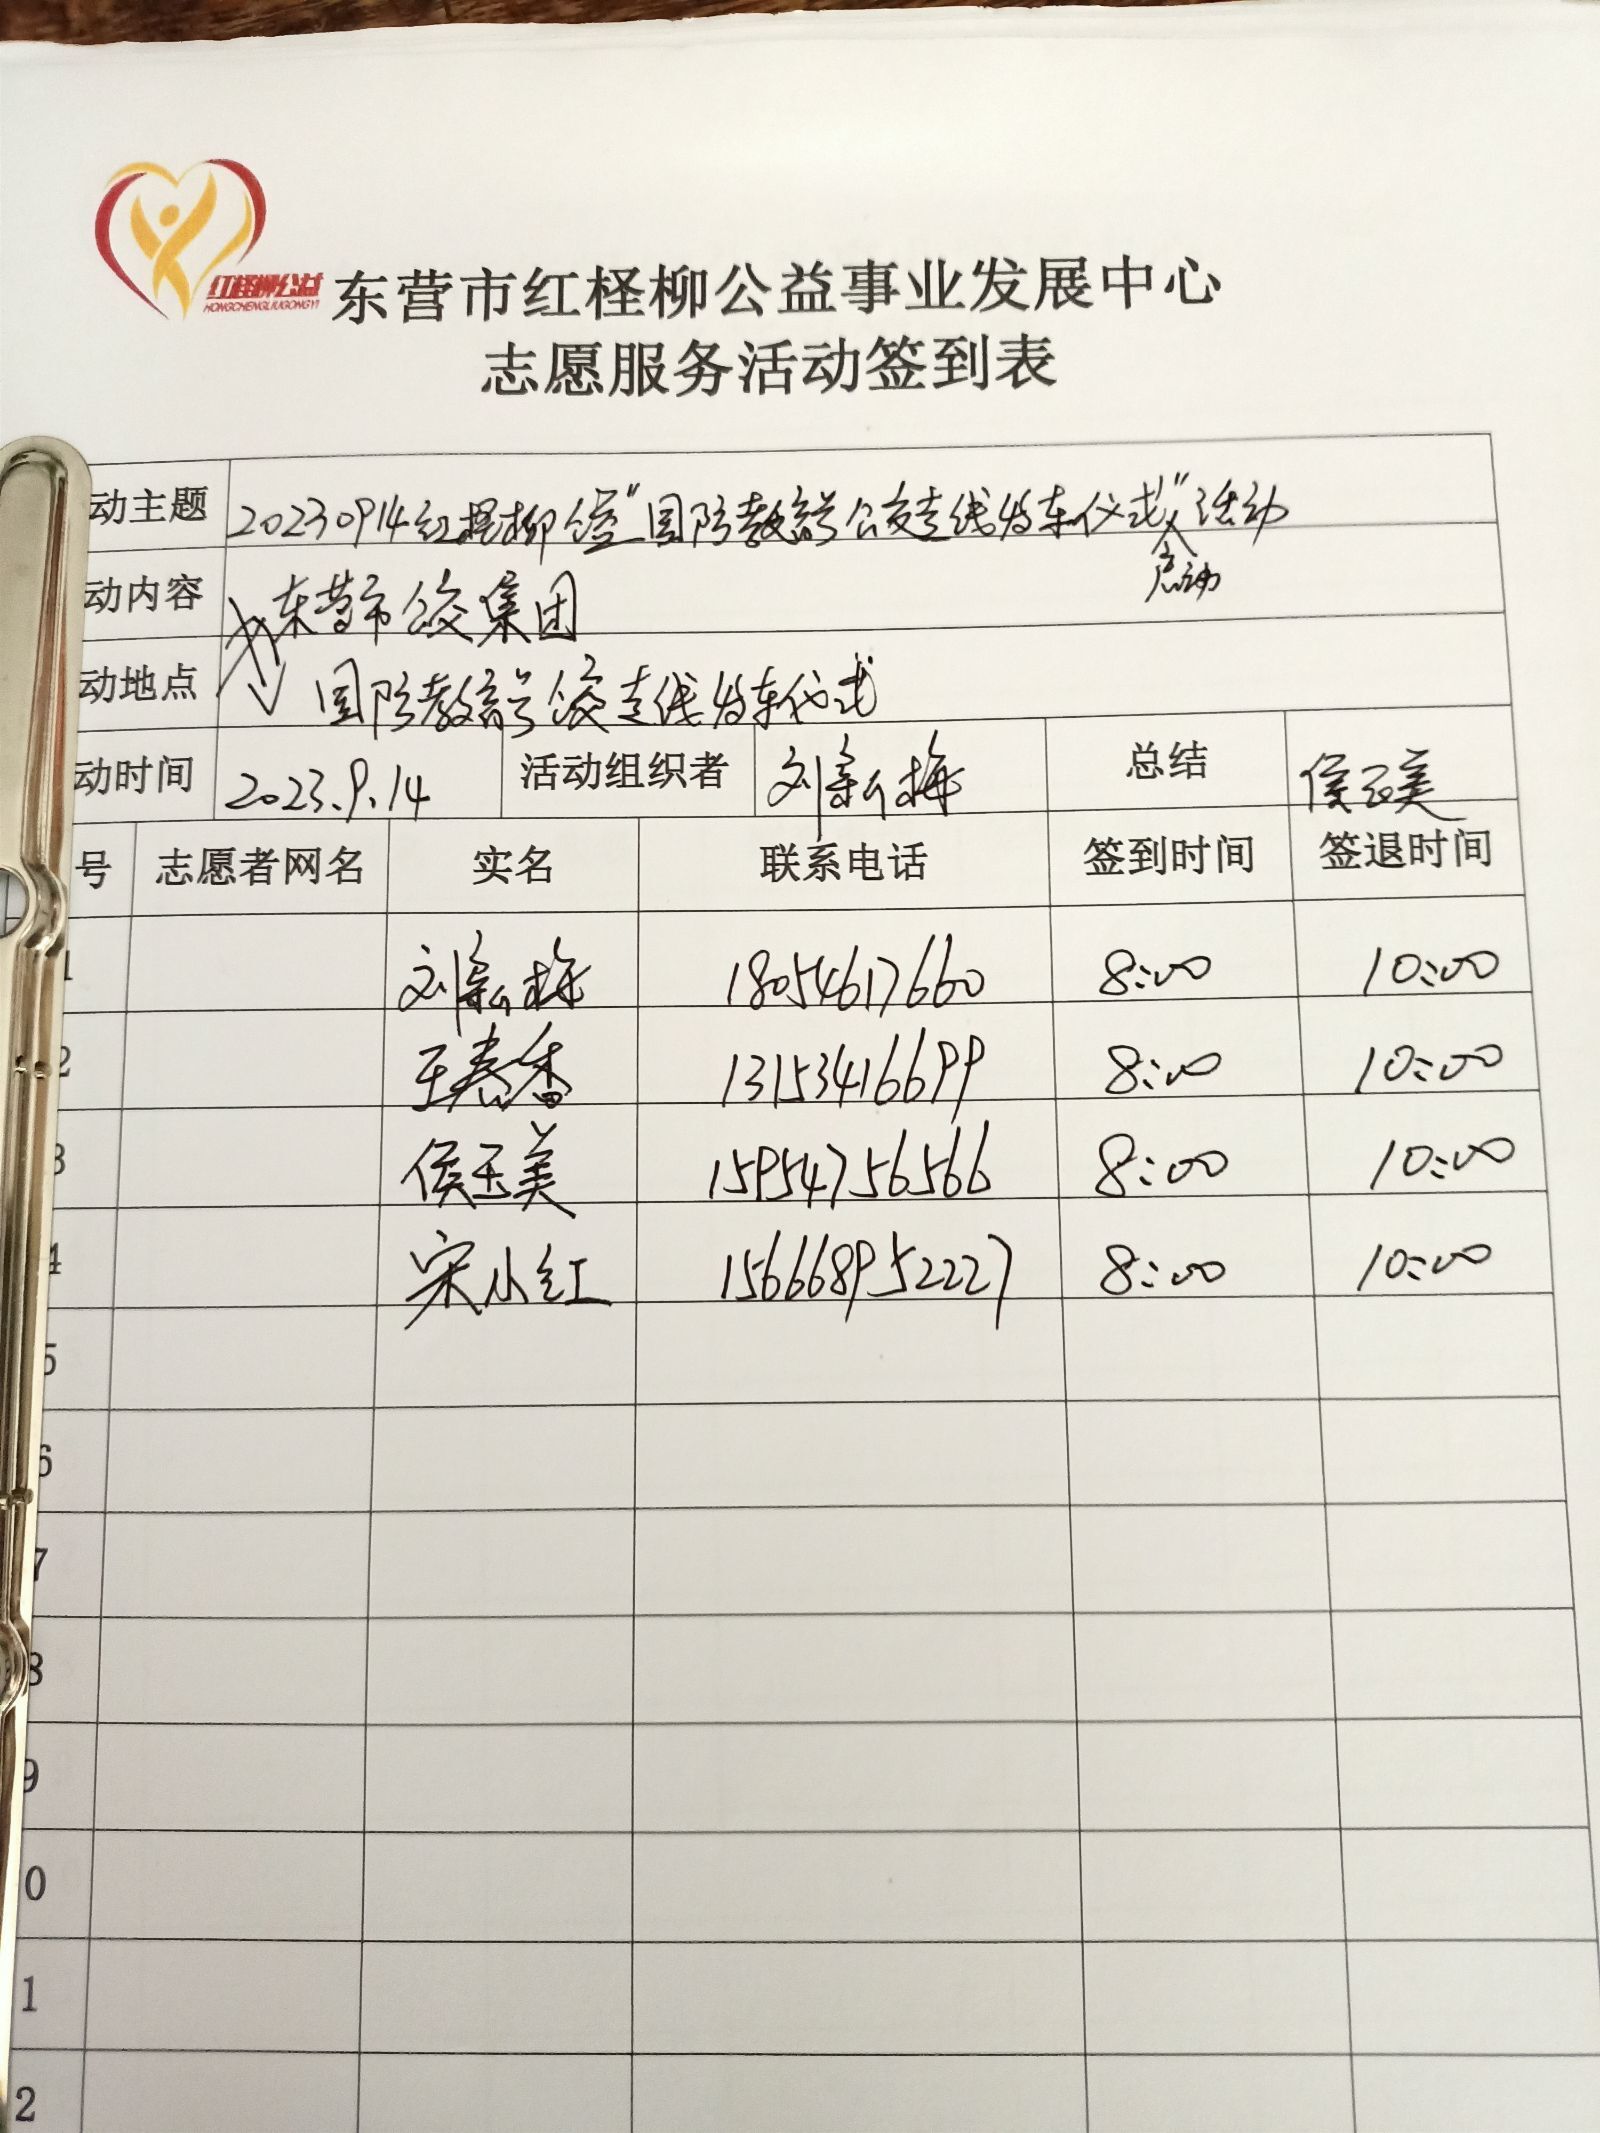 红柽柳公益
HONGCHENGLIUGONGYI
东营市红柽柳公益事业发展中心
志愿服务活动签到表
动主题 20230914红柽柳公益"国防教育号公交专线发车仪式"活动
启动
动内容 东营市公交集团
动地点 国防教育号公交专线发车仪式
动时间 2023.9.14 活动组织者 刘新梅 总结 侯玉美
号 志愿者网名 实名 联系电话 签到时间 签退时间
1 刘新梅 18054617660 8:00 10:00
2 王春香 13153416699 8:00 10:00
3 侯玉美 15954756566 8:00 10:00
4 宋小红 156668952227 8:00 10:00
5
6
7
8
9
0
1
2